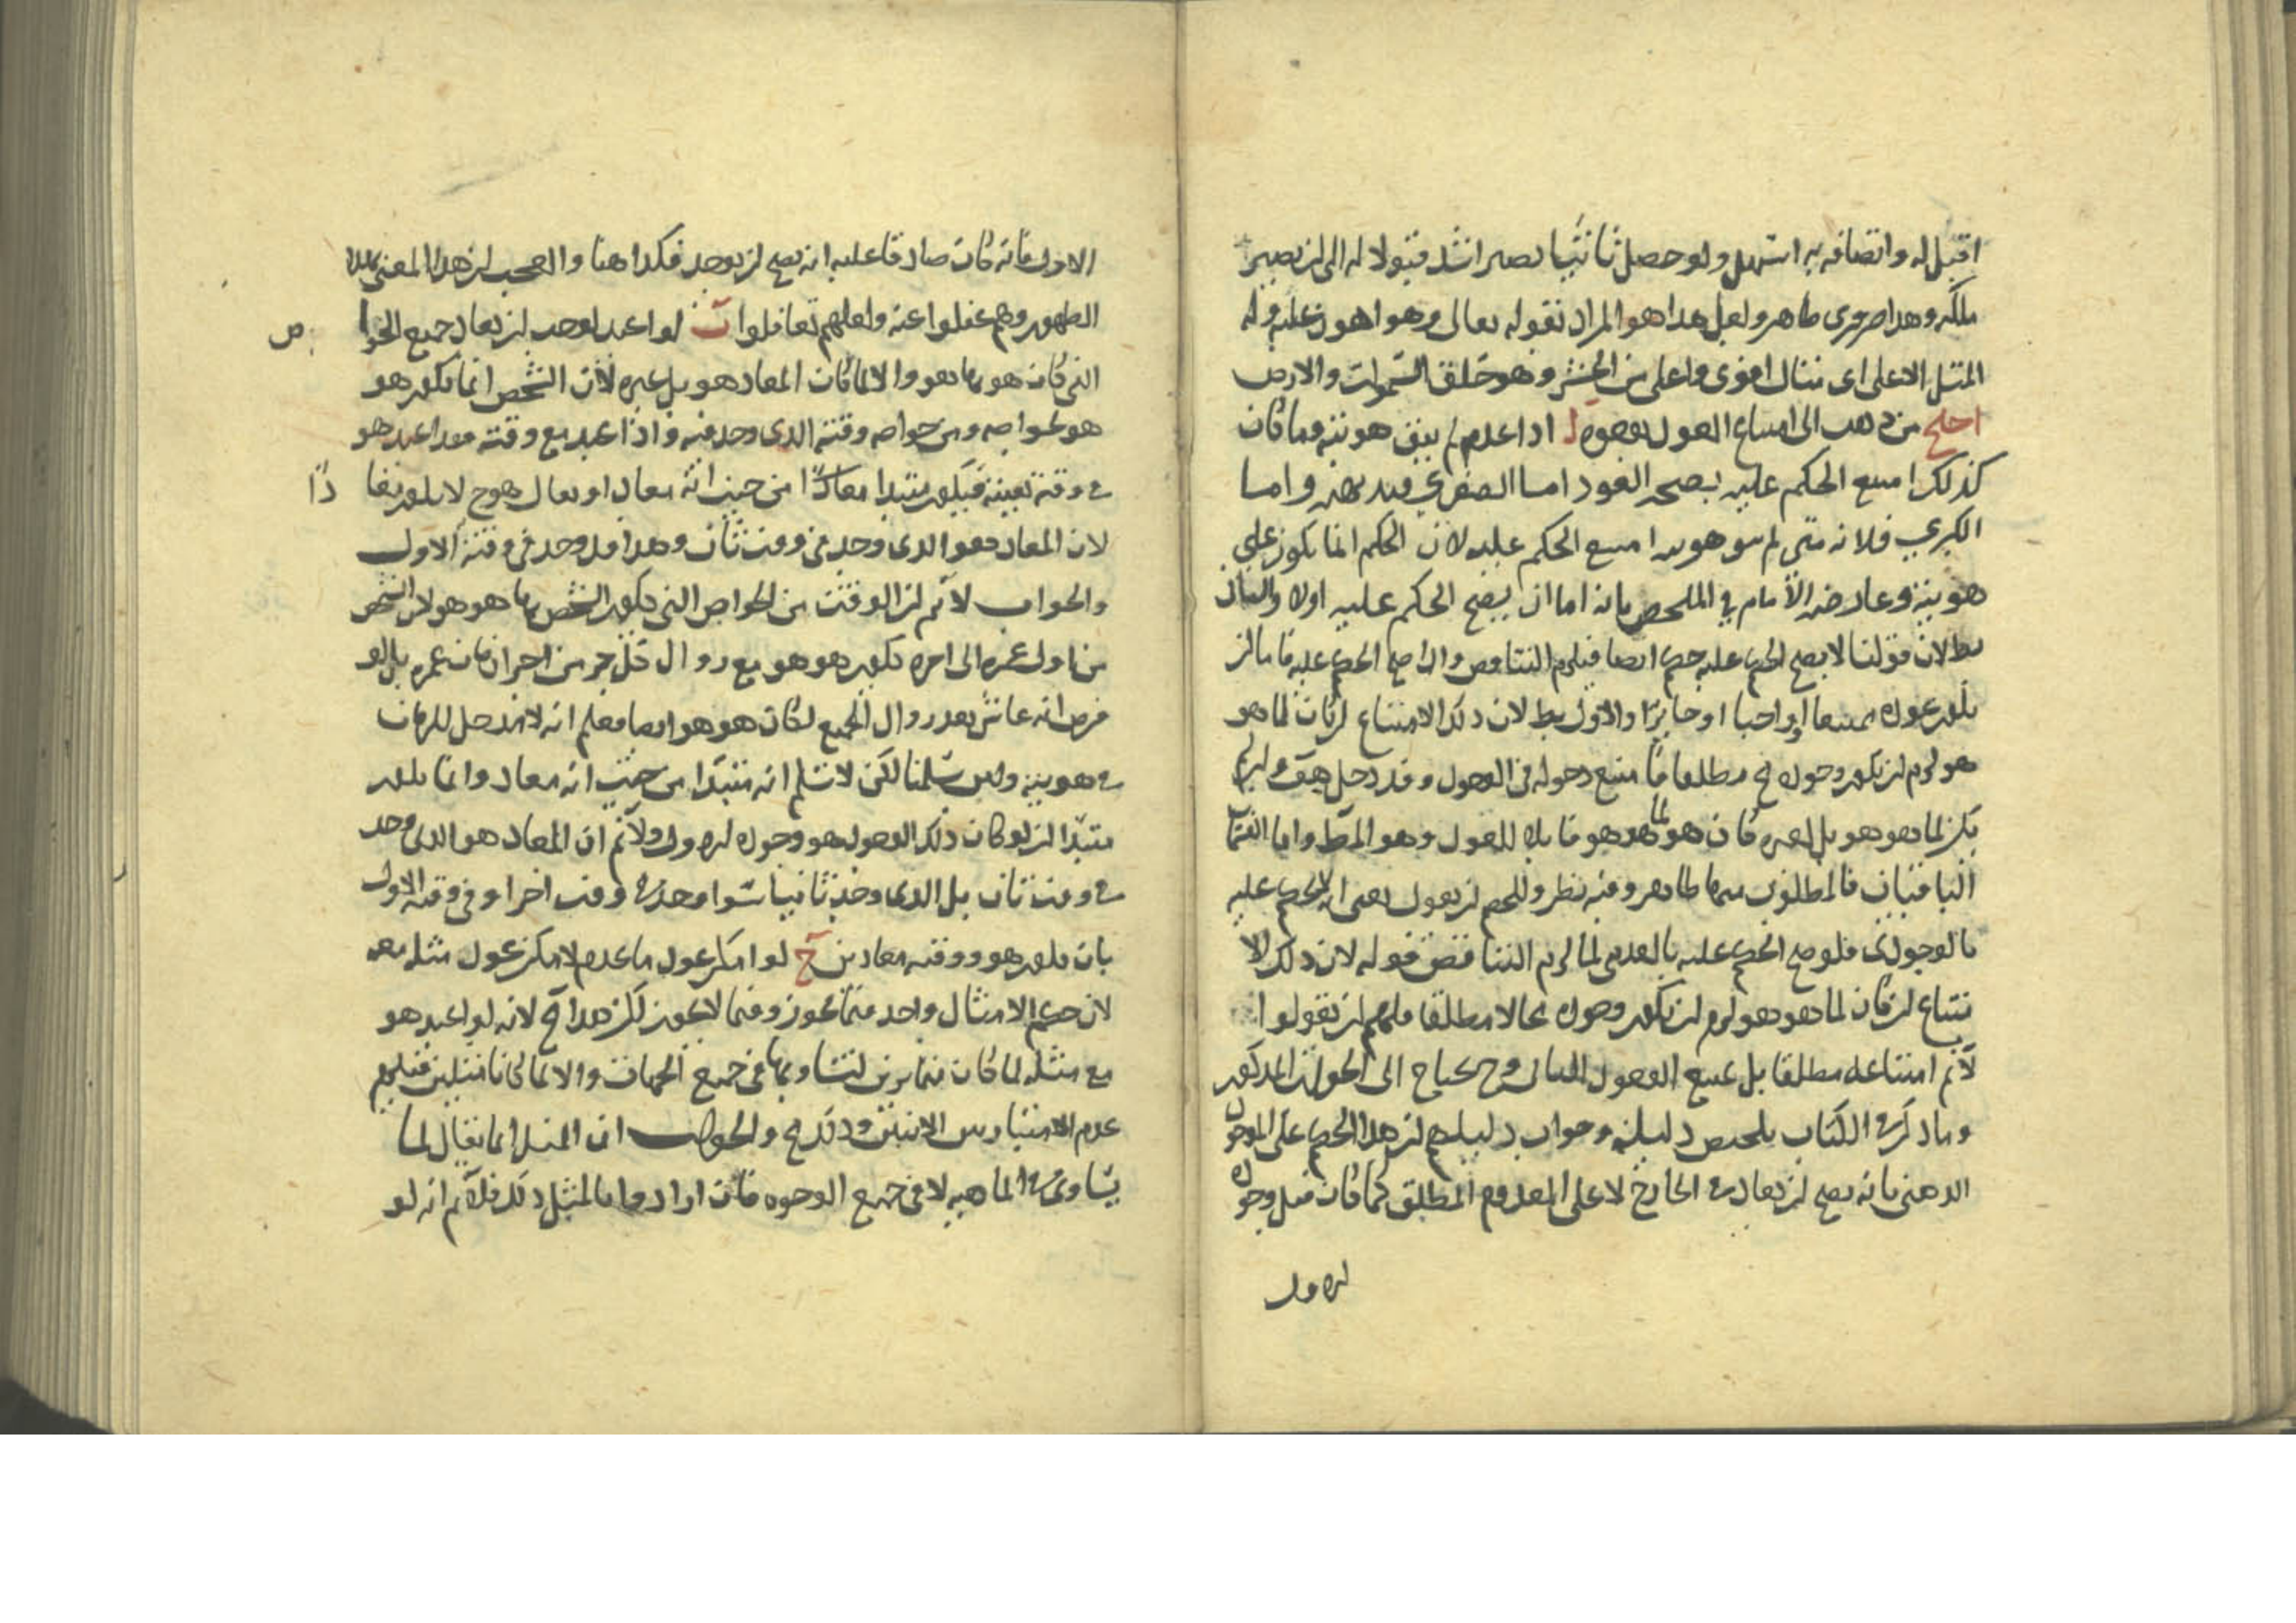 اقبل له واتصافه به اسهل ولو حصل ثانيا يصير اشد قبولا له الى ان يصير
ملكة وهدا ضروري ظاهر ولعل هدا هو المراد بقوله تعالى وهو اهون عليه وله
المثل الاعلى اى مثال اقوى واعلى من الحشر وهو خلق السموات والارض
احتج من دهب الى امتناع العود بوجوه آ ادا عدم لم يبق هويته وما كان
كذلك امتنع الحكم عليه بصحة العود اما الصغرى واما
الكبرى فلانه متى لم هويته امتنع الحكم عليه لان الحكم انما يكون على
هويته وعارضه الامام في الملخص بانه اما ان يصح الحكم عليه اولا والثانى
بط لان قولنا لا يصح الحكم عليه حكم ايضا فيلزم التناقض وادا صح الحكم عليه فاما ان
يكون عوده ممتنعا او واجبا او جايزا والاول بط لان دلك الامتناع ان كان لما هو
هو لزم ان يكون وجوده مطلقا امتنع دخوله فى الوجود وقد دخل هف وان لم
يكن لما هو هو بل لغيره كان هو لما هو هو قابلا للعود وهو المط واما القسمان
الباقيان فالمطلوب منهما ظاهر وفيه نظر وللخصم ان يقول معنى انه لا يحكم عليه
بالوجودى فلو صح الحكم عليه بالعدمى لما لزم التناقض قوله لان دلك الا
متناع ان كان لما هو هو لزم ان يكون وجوده محالا مطلقا فلهم ان يقولوا
لانم امتناعه مطلقا بل يمتنع الوجود الثانى وح يحتاج الى الجواب المدكور
وما دكره الكتاب يلخص دليله وجواب دليلهم ان هدا الحكم على الموجود
الدهنى بانه يصح ان يعاد فى الخارج لا على المعدوم المطلق كما كان قبل وجوده
الاول
الاول فانه كان صادقا عليه انه يصح ان يوجد فكدا هنا والعجب ان هدا المعنى بهدا
الظهور وهم غفلوا عنه ولعلهم تغافلوا ب لو اعيد لوجب ان يعاد جميع الخوا
ص
التى كان هو بها هو والا لما كان المعاد هو بل غيره لان الشخص انما يكون هو
هو بخواصه ومن خواصه وقته الدى وجد فيه واذا اعيد مع وقته فقد اعيد هو
فى وقته بعينه فيكون مبتدا معادا من حيث انه معاد او يقال هو ح لا يكون معا
دًا
لان المعاد هو الدى وجد فى وقت ثان وهدا قد وجد فى وقته الاول
والجواب لانم ان الوقت من الخواص التى يكون الشخص بها هو هو لان الشخص
من اول عمره الى اخره يكون هو هو مع زوال كل جز من اجزا زمان عمره بل لو
فرض انه عاش بعد زوال الجميع لكان هو هو ايضا فعلم انه لا مدخل للزمان
فى هويته ولين سلمنا لكن لا نسلم انه مبتدا من حيث انه معاد وانما يكون
مبتدا ان لو كان ذلك الوجود هو وجوده الاول ولانم ان المعاد هو الدى وجد
فى وقت ثان بل الدى وجد ثانيا سوا وجد فى وقت اخر او فى وقته الاول
بان يكون هو ووقته معادين ج لو امكن عود ما عدم لامكن عود مثله معه
لان حكم الامثال واحد فيما يجوز وفيما لا يجوز لكن هدا مح لانه لو اعيد هو
مع مثله لما كان متمايزين لتساويهما فى جميع الجهات والا لما كانا مثلين فيلزم
عدم الامتياز بين الاثنين ودلك مح والجواب ان المثل انما يقال لما
يساوى فى الماهيه لا فى جميع الوجوه فان ارادوا بالمثل دلك فلانم انه لو